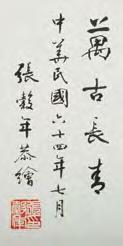 萬古長青
中華民國六十四年七月
張穀年恭繪